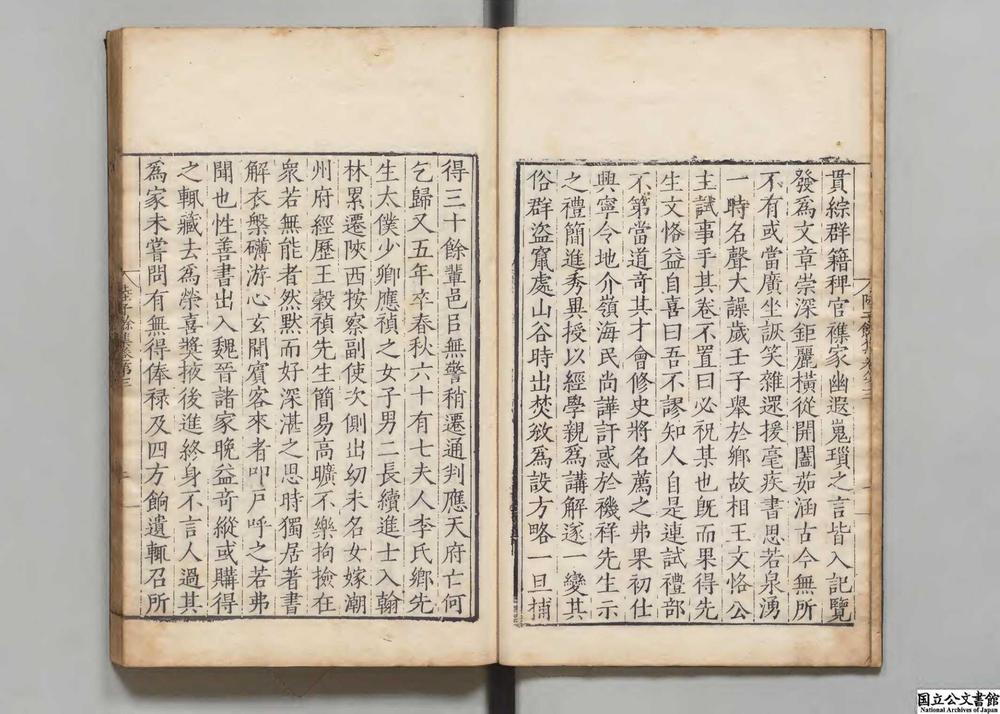 貫綜群籍稗官襍家幽遐嵬瑣之言皆入記覽
發爲文章崇深鉅麗橫從開闔茹涵古今無所
不有或當廣坐詼笑雜遝援毫疾書思若泉湧
一時名聲大譟歲壬子舉於鄉故相王文恪公
主試事手其卷不置曰必祝某也旣而果得先
生文恪益自喜曰吾不謬知人自是連試禮部
不第當道奇其才會修史將名薦之弗果初仕
興寧令地介嶺海民尚譁訐惑於禨祥先生示
之禮簡進秀異授以經學親爲講解遂一變其
俗群盜竄處山谷時出焚敓爲設方略一旦捕
得三十餘輩邑以無警稍遷通判應天府亡何
乞歸又五年卒春秋六十有七夫人李氏鄉先
生太僕少卿應禎之女子男二長續進士入翰
林累遷陝西按察副使次側出幼未名女嫁潮
州府經歷王榖禎先生簡易高曠不樂拘撿在
衆若無能者然默而好深湛之思時獨居著書
解衣槃礴游心玄閒賓客來者叩戶呼之若弗
聞也性善書出入魏晉諸家晚益奇縱或購得
之輒藏去爲榮喜獎掖後進終身不言人過其
爲家未嘗問有無得俸祿及四方餉遺輒召所
陸子餘集卷第三
国立公文書館
National Archives of Japan